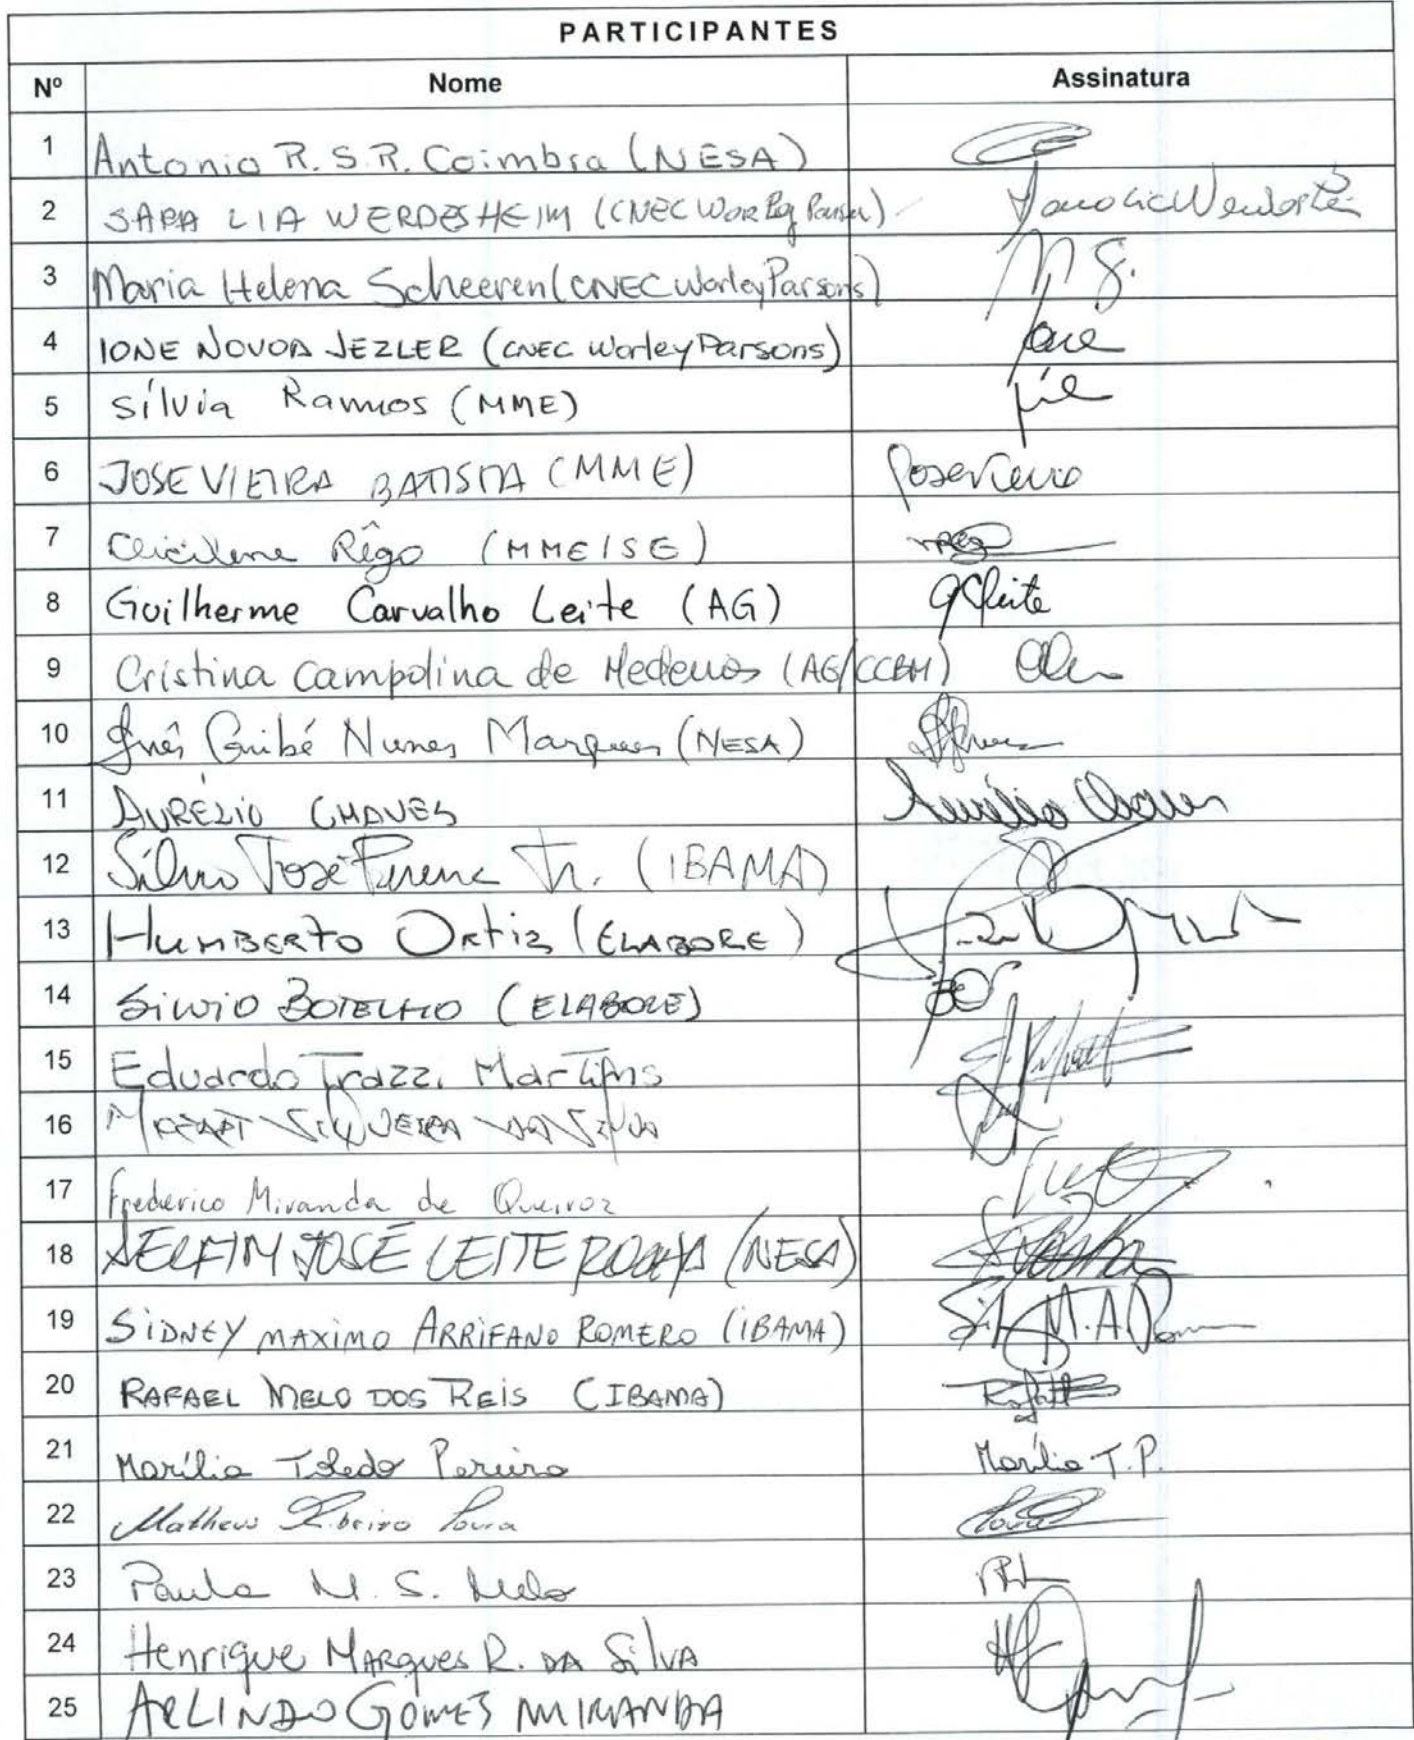 PARTICIPANTES
Nº Nome Assinatura
1 Antonio R. S. R. Coimbra (NESA)
2 SARA LIA WERDESHEIM (CNEC Worley Parsons)
3 Maria Helena Scheeren (CNEC WorleyParsons) M S.
4 IONE NOVOA JEZLER (CNEC WorleyParsons) Ione
5 Sílvia Ramos (MME)
6 JOSE VIEIRA BATISTA (MME) Jose Vieira
7 Clicilene Rêgo (MME/SE)
8 Guilherme Carvalho Leite (AG) GCLeite
9 Cristina Campolina de Medeiros (AG/CCBM)
10 Inês Caribé Nunes Marques (NESA)
11 AURÉLIO CHAVES Aurélio Chaves
12 Silvio José Jr. (IBAMA)
13 HUMBERTO ORTIZ (ELABORE)
14 SILVIO BOTELHO (ELABORE)
15 Eduardo Trazzi Martins
16 SIQUEIRA DA SILVA
17 Frederico Miranda de Queiroz
18 DELFIM JOSÉ LEITE ROCHA (NESA)
19 SIDNEY MAXIMO ARRIFANO ROMERO (IBAMA) M.A.
20 RAFAEL MELO DOS REIS (IBAMA)
21 Marília Toledo Pereira Marília T.P.
22 Matheus Ribeiro
23 Paula M. S. Melo
24 Henrique MARQUES R. DA SilVA
25 ARLINDO GOMES MIRANDA